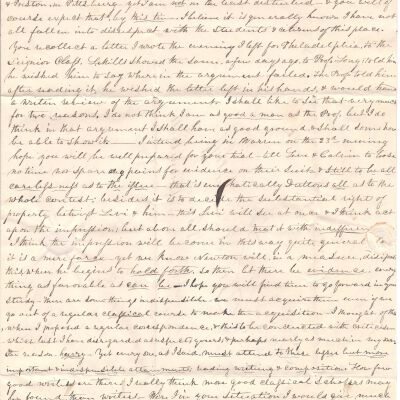 & Weston in Pittsburg, yet I am not in the least disturbed — & you will of
course expect that by this time — I believe it is generally known I have not
all fallen into disrespect with the Students & citizens of this place.
You recollect a letter I wrote the evening I left for Philadelphia, to the
Seignior Class. Sekills showed the same, a few days ago, to Prof. Long & told him
he wished him to say wherein the argument failed. The Prof. told him
after reading it, he wished the letter left in his hands, & would than
a written review of the argument. I shall like to see that very much
for two reasons, I do not think I am as good a man as the Prof. but I do
think in that argument I shall have as good ground, & shall somehow
be able to show it — I intend being in Warren on the 23rd evening
hope you will be well prepared for your trial — let Levi & Calvin to loose
no time nor spare any pains for evidence on their Suit, & still to be all
carelessness as to the issue — that is emphatically & allows all as to the
whole contest; besides it is to decide the substantial right of
property betwixt Levi & him — this Levi will see at once & I think act
upon the impression; but above all should treat it with indifference
I think the impression will be come in this way quite general, that
it is a mere farce yet we know Newton will in a measure, dissipate
this when he begins to hold forth, so then let there be evidence, every
thing as favorable as can be — I hope you will find time to go forward in your
Study. There are some things indispensible, we must acquire them even if we
go out of a regular classical course to make the acquisition I thought of this
when I proposed a regular correspondence, & this to be conducted with criticism
which last I have disregarded as respects yours, & perhaps nearly as much in my own
the reason hurry. Yet every one, as I said, must attend to these less but more
important & indispensible attainments, reading, writing & composition. How few
good writers are there, I really think more good classical Scholars may
be found than writers. Were I in your situation I would give much